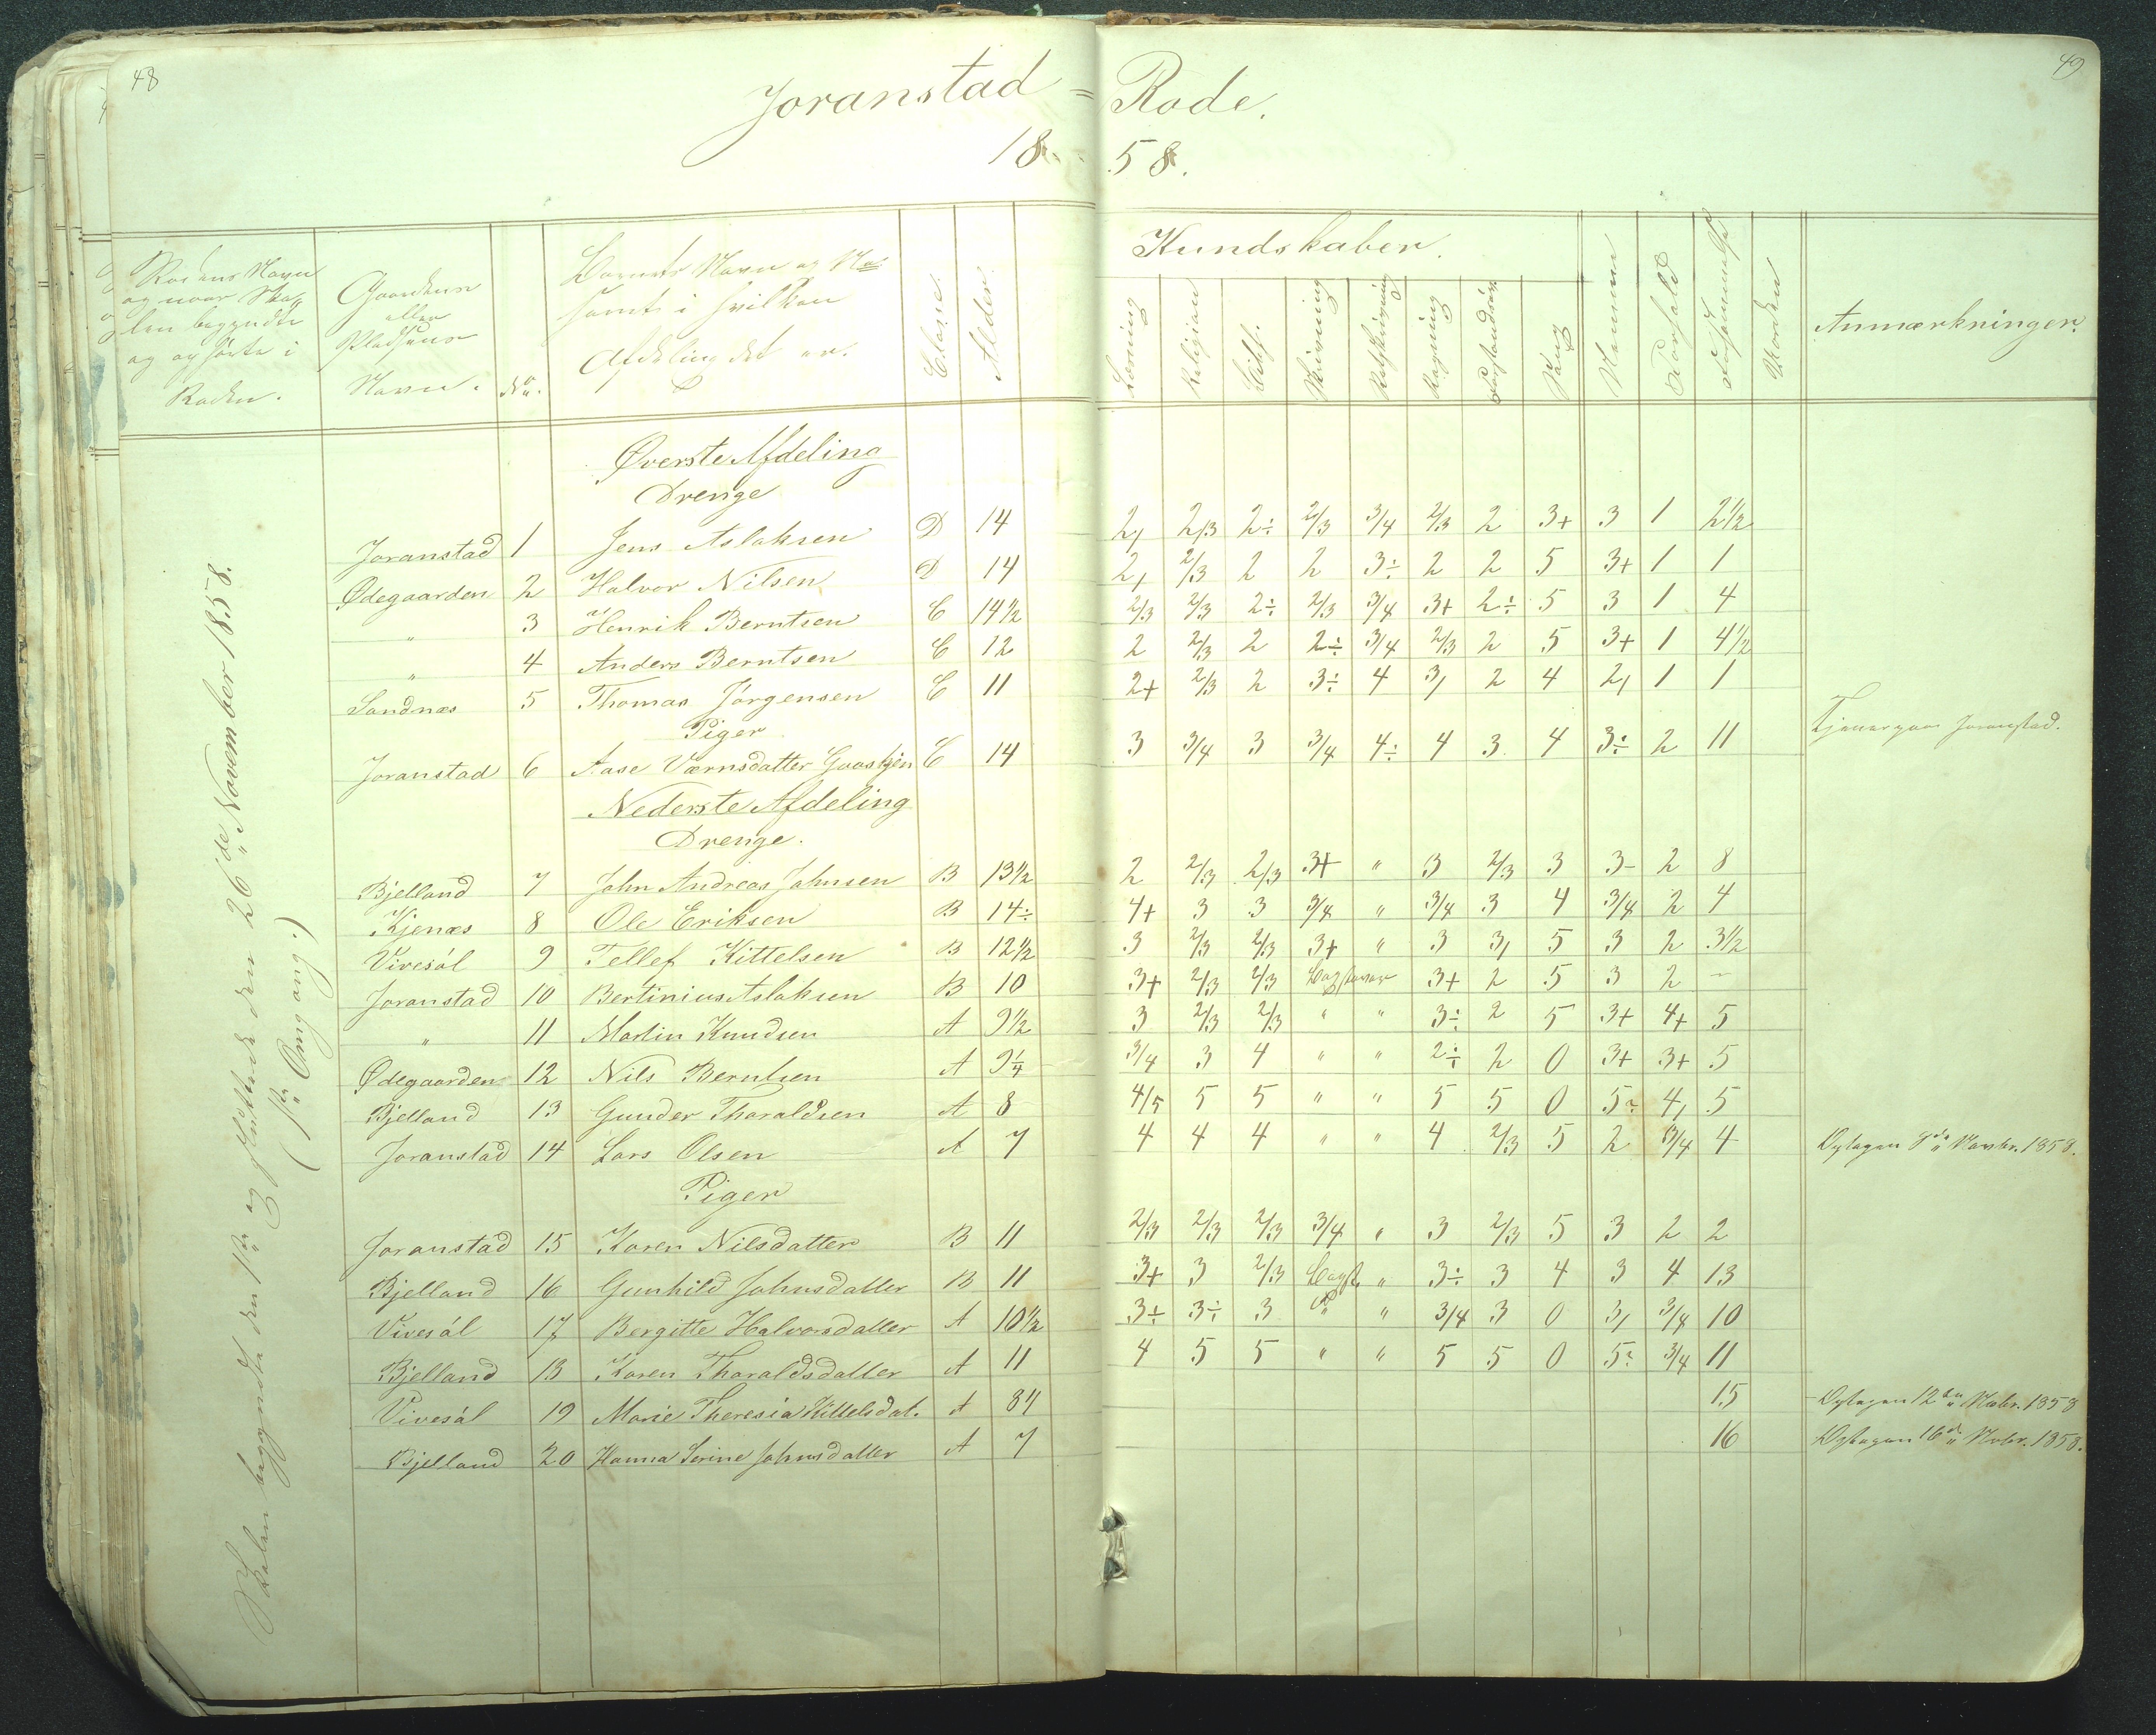 48
49
Joranstad = Rode.
18 58.
Rodens Navn og naar Skolen begyndte og ophørte i Roden.
Gaardens eller Pladsens Navn.
No.
Barnets Navn og No samt i hvilken Afdeling det er.
Classe.
Alder.
Kundskaber.
Læsning
Religion
Skrivning
Retskrivning
Regning
Forstandsøv.
Sang
Nemme
Forhold
Forsømmelse
Anmærkninger.
Skolen begyndte den 1ste og sluttede den 26de November 1858.
(1ste Omgang.)
Øverste Afdeling
Drenge
Joranstad 1 Jens Aslaksen D 14 2, 2/3 2÷ 2/3 3/4 2/3 2 3+ 3 1 2½
Ødegaarden 2 Halvor Nilsen D 14 2, 2/3 2 2 3÷ 2 2 5 3+ 1 1
" 3 Henrik Berntsen C 14½ 2/3 2/3 2÷ 2/3 3/4 3+ 2÷ 5 3 1 4
" 4 Anders Berntsen C 12 2 2/3 2 2÷ 3/4 2/3 2 5 3+ 1 4½
Sandnæs 5 Thomas Jörgensen C 11 2+ 2/3 2 3÷ 4 3, 2 4 2, 1 1
Piger
Joranstad 6 AaseVærnsdatter Gaaskjen C 14 3 3/4 3 3/4 4÷ 4 3 4 3÷ 2 11 Tjener paa Joranstad.
Nederste Afdeling
Drenge.
Bjelland 7 John Andreas Johnsen B 13½ 2 2/3 2/3 3+ " 3 2/3 3 3- 2 8
Kjenæs 8 Ole Eriksen B 14÷ 4+ 3 3 3/4 " 3/4 3 4 3/4 2 4
Vivesöl 9 Tellef Kittelsen B 12½ 3 2/3 2/3 3+ " 3 3, 5 3 2 3½
Joranstad 10 Bertinius Aslaksen B 10 3+ 2/3 2/3 Bogstaver 3+ 2 5 3 2 -
" 11 Martin Knudsen A 9½ 3 2/3 2/3 " " 3÷ 2 5 3+ 4+ 5
Ødegaarden 12 Nils Berntsen A 9¼ 3/4 3 4 " " 2÷ 2 0 3+ 3+ 5
Bjelland 13 Gunder Tharaldsen A 8 4/5 5 5 " " 5 5 0 5÷ 4, 5
Joranstad 14 Lars Olsen A 7 4 4 4 " " 4 2/3 5 2 3/4 4 Optagen 8de Novbr. 1858.
Piger
Joranstad 15 Karen Nilsdatter B 11 2/3 2/3 2/3 3/4 " 3 2/3 5 3 2 2
Bjelland 16 Gunhild Johnsdatter B 11 3+ 3 2/3 Bogst. " 3÷ 3 4 3 4 13
Vivesöl 17 Bergitte Halvorsdatter A 10½ 3÷ 3÷ 3 " " 3/4 3 0 3, 3/4 10
Bjelland 18 Karen Tharaldsdatter A 11 4 5 5 " " 5 5 0 5÷ 3/4 11
Vivesöl 19 Marie Theresia Kittelsdat. A 8 15 Optagen 12te Novbr. 1858
Bjelland 20 Hanna Serine Johnsdatter A 7 16 Optagen 16de Novbr. 1858.